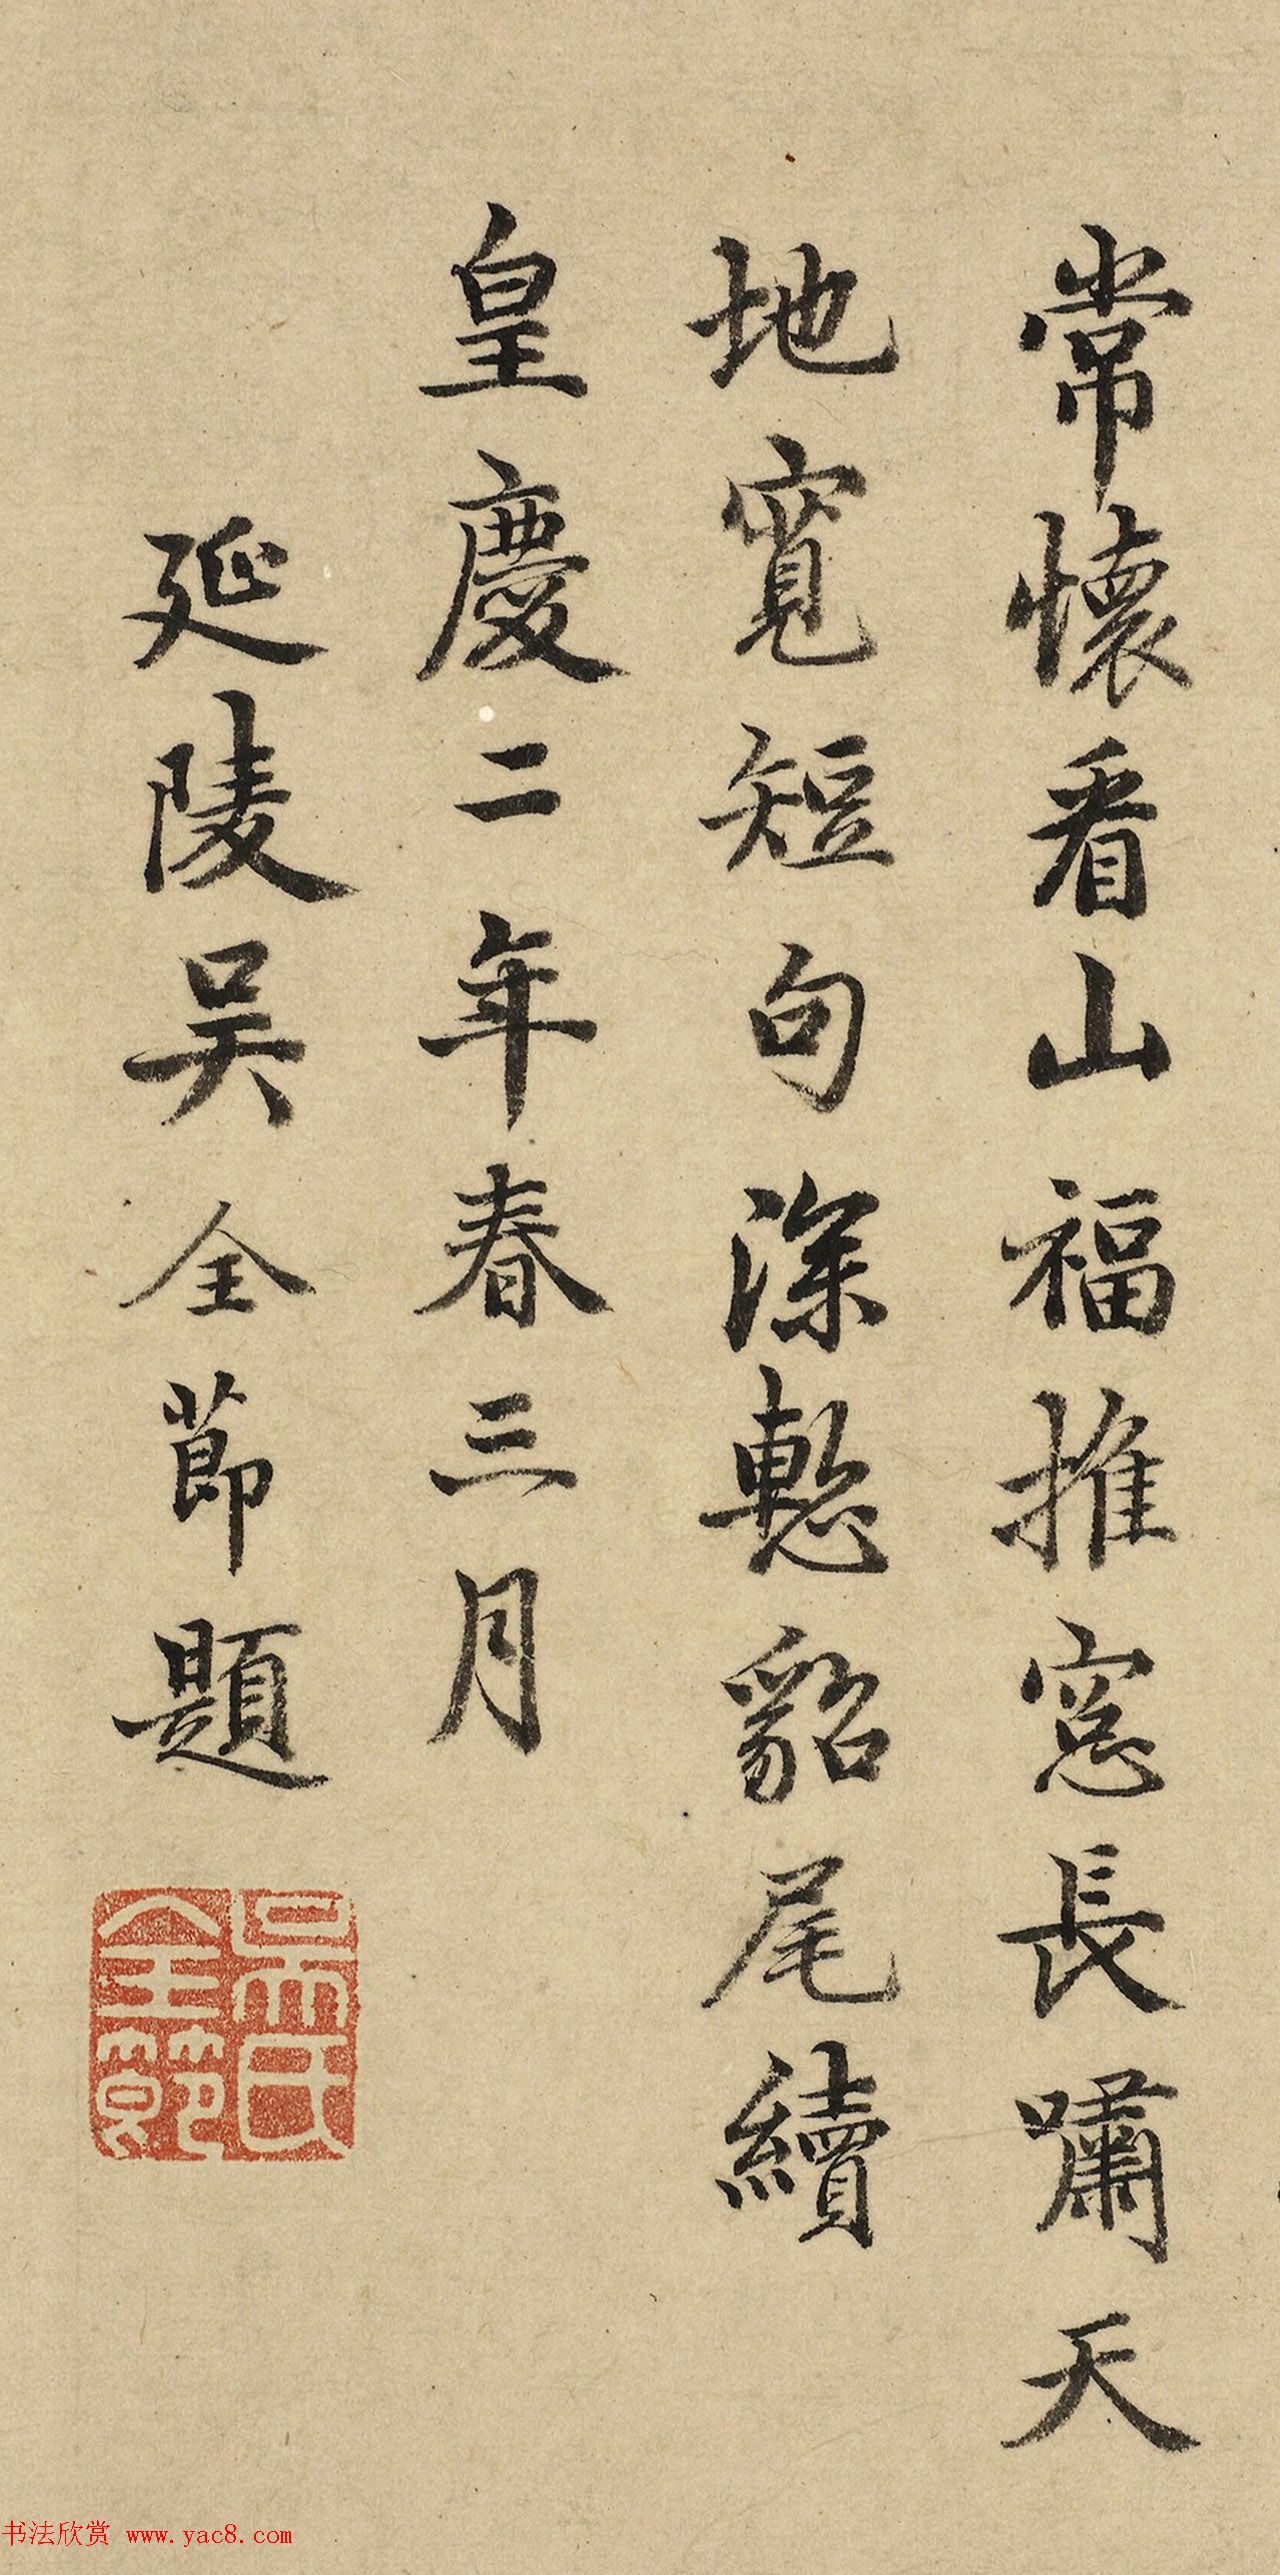 常懷看山福推窓長嘯天
地寬短句深慙貂尾續
皇慶二年春三月
延陵吴全節題
吴氏全節
书法欣赏 www.yac8.com